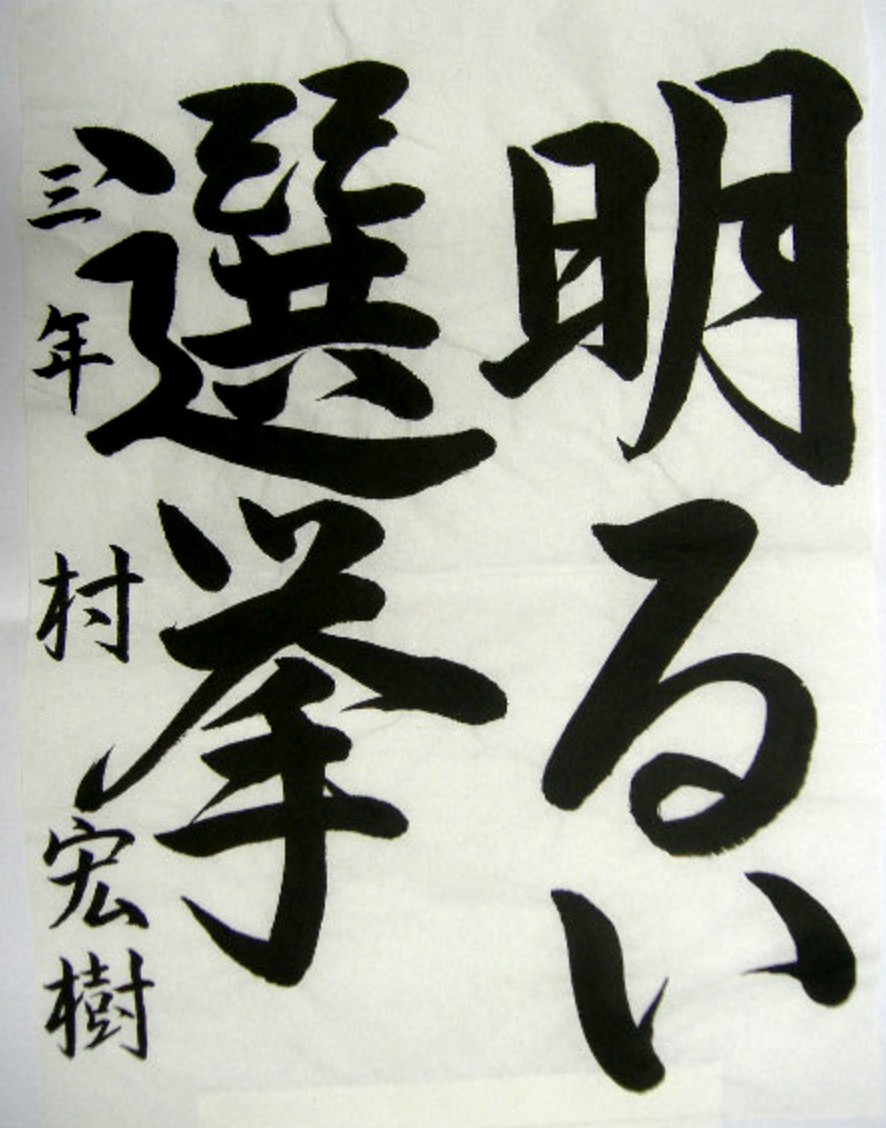 明るい
選挙
三年 村 宏樹